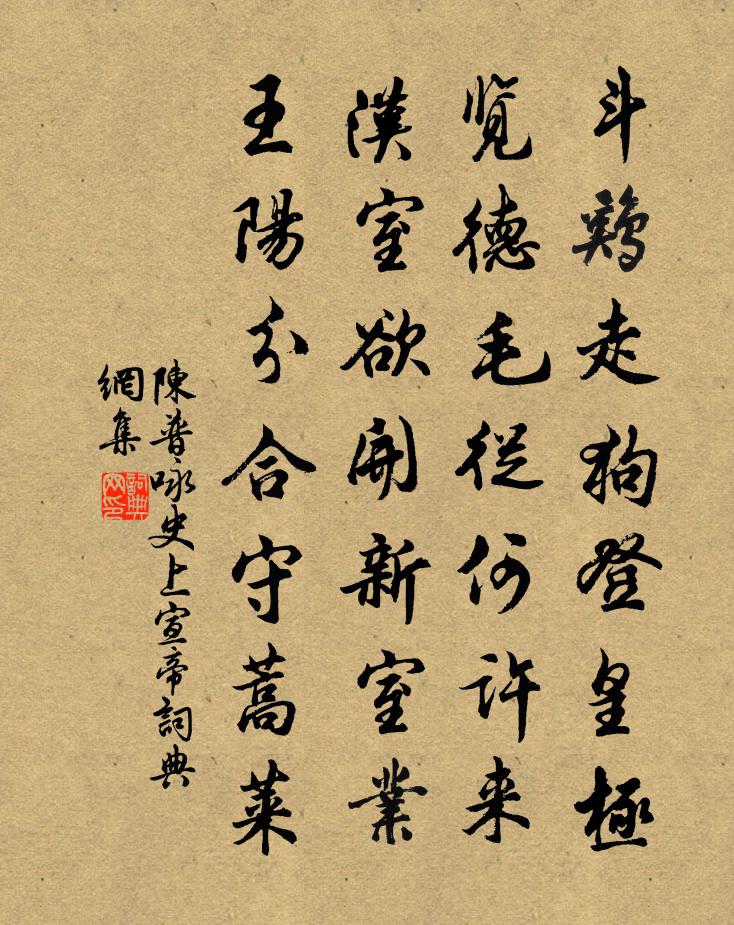 斗鷄走狗登皇極
覽德毛從何許来
漢室欲開新室業
王陽分合守蒿萊
陳普咏史上宣帝詞典
網集
詞典
网印